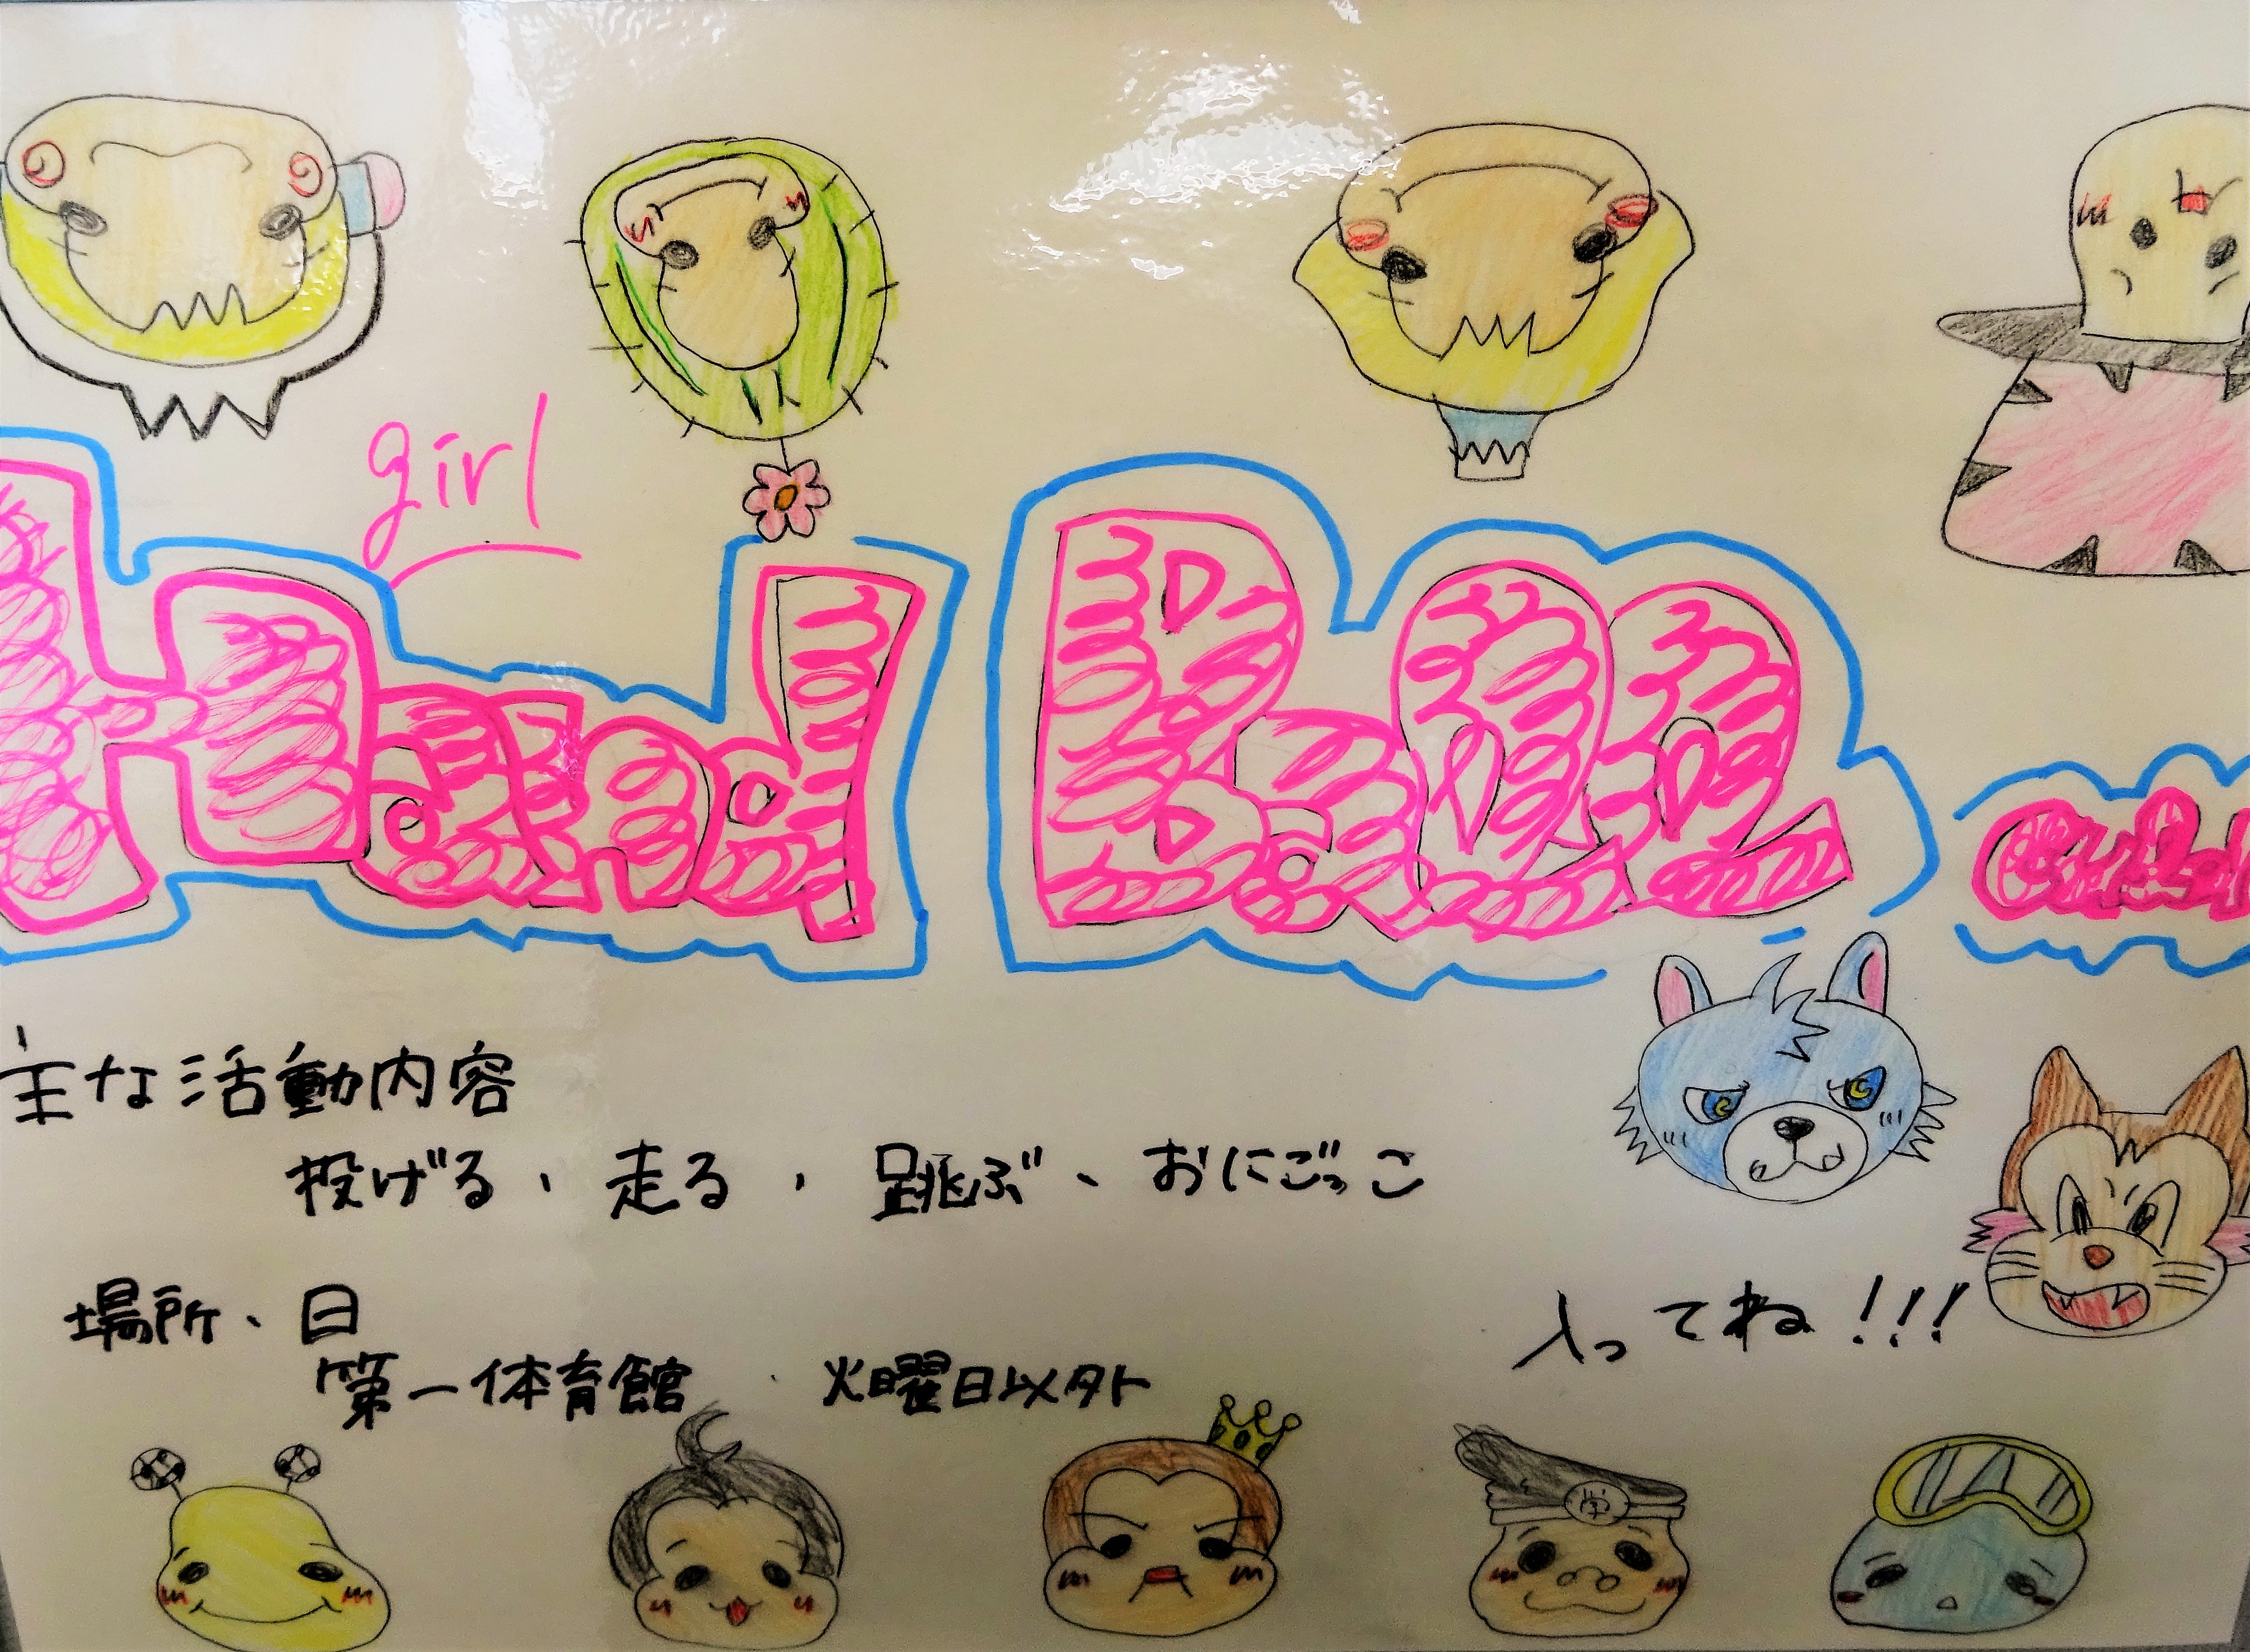 girl
Hand Ball club
主な活動内容
投げる、走る、跳ぶ、おにごっこ
場所、日
第一体育館 火曜日以外
入ってね!!!